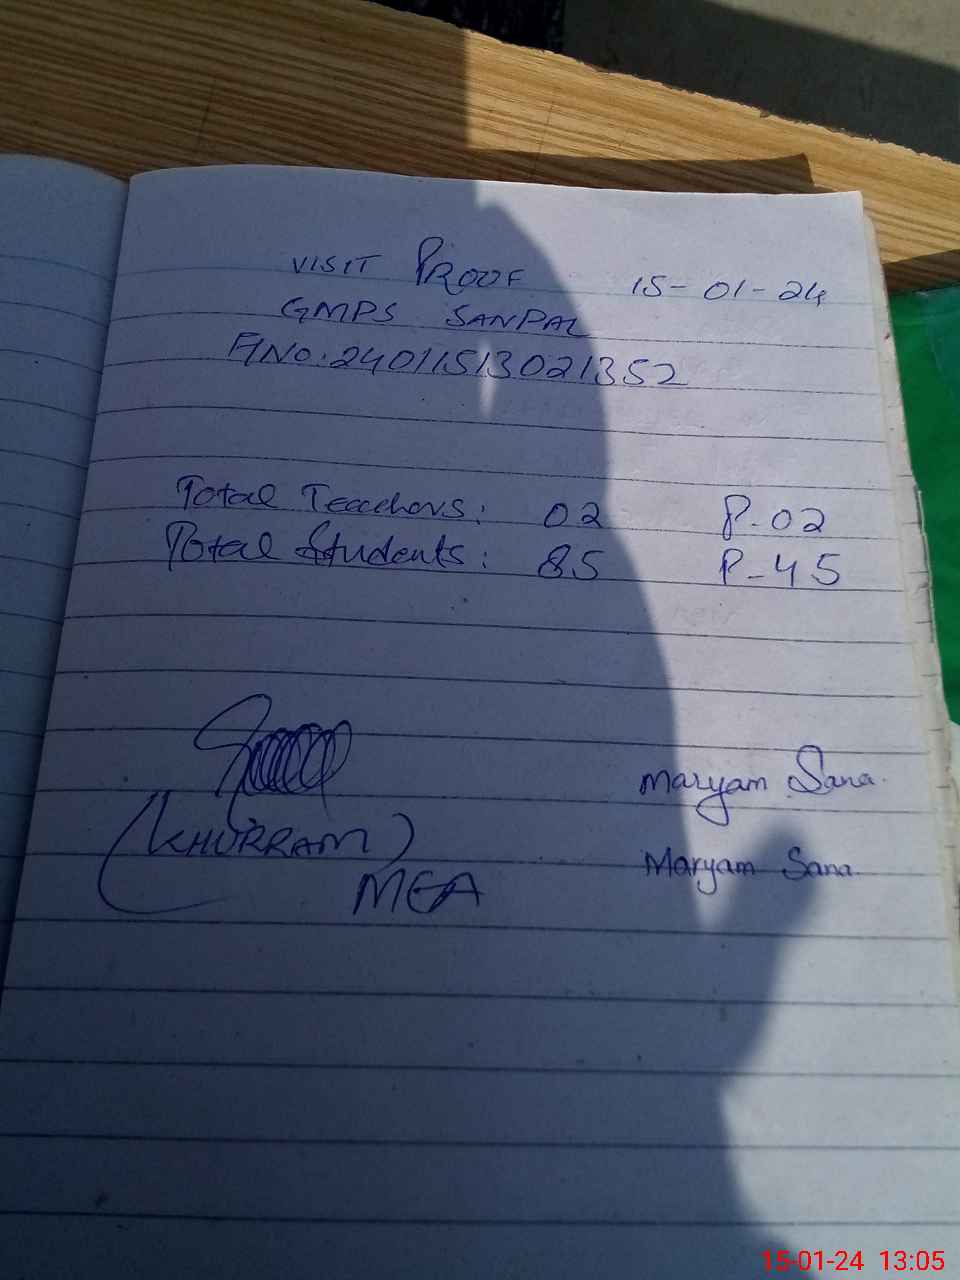 VISIT PROOF 15-01-24
GMPS SANPAL
F/NO:24011513021352
Total Teachers: 02 P-02
Total Students: 85 P-45
Maryam Sana.
(KHURRAM) Maryam Sana.
MEA
15-01-24 13:05